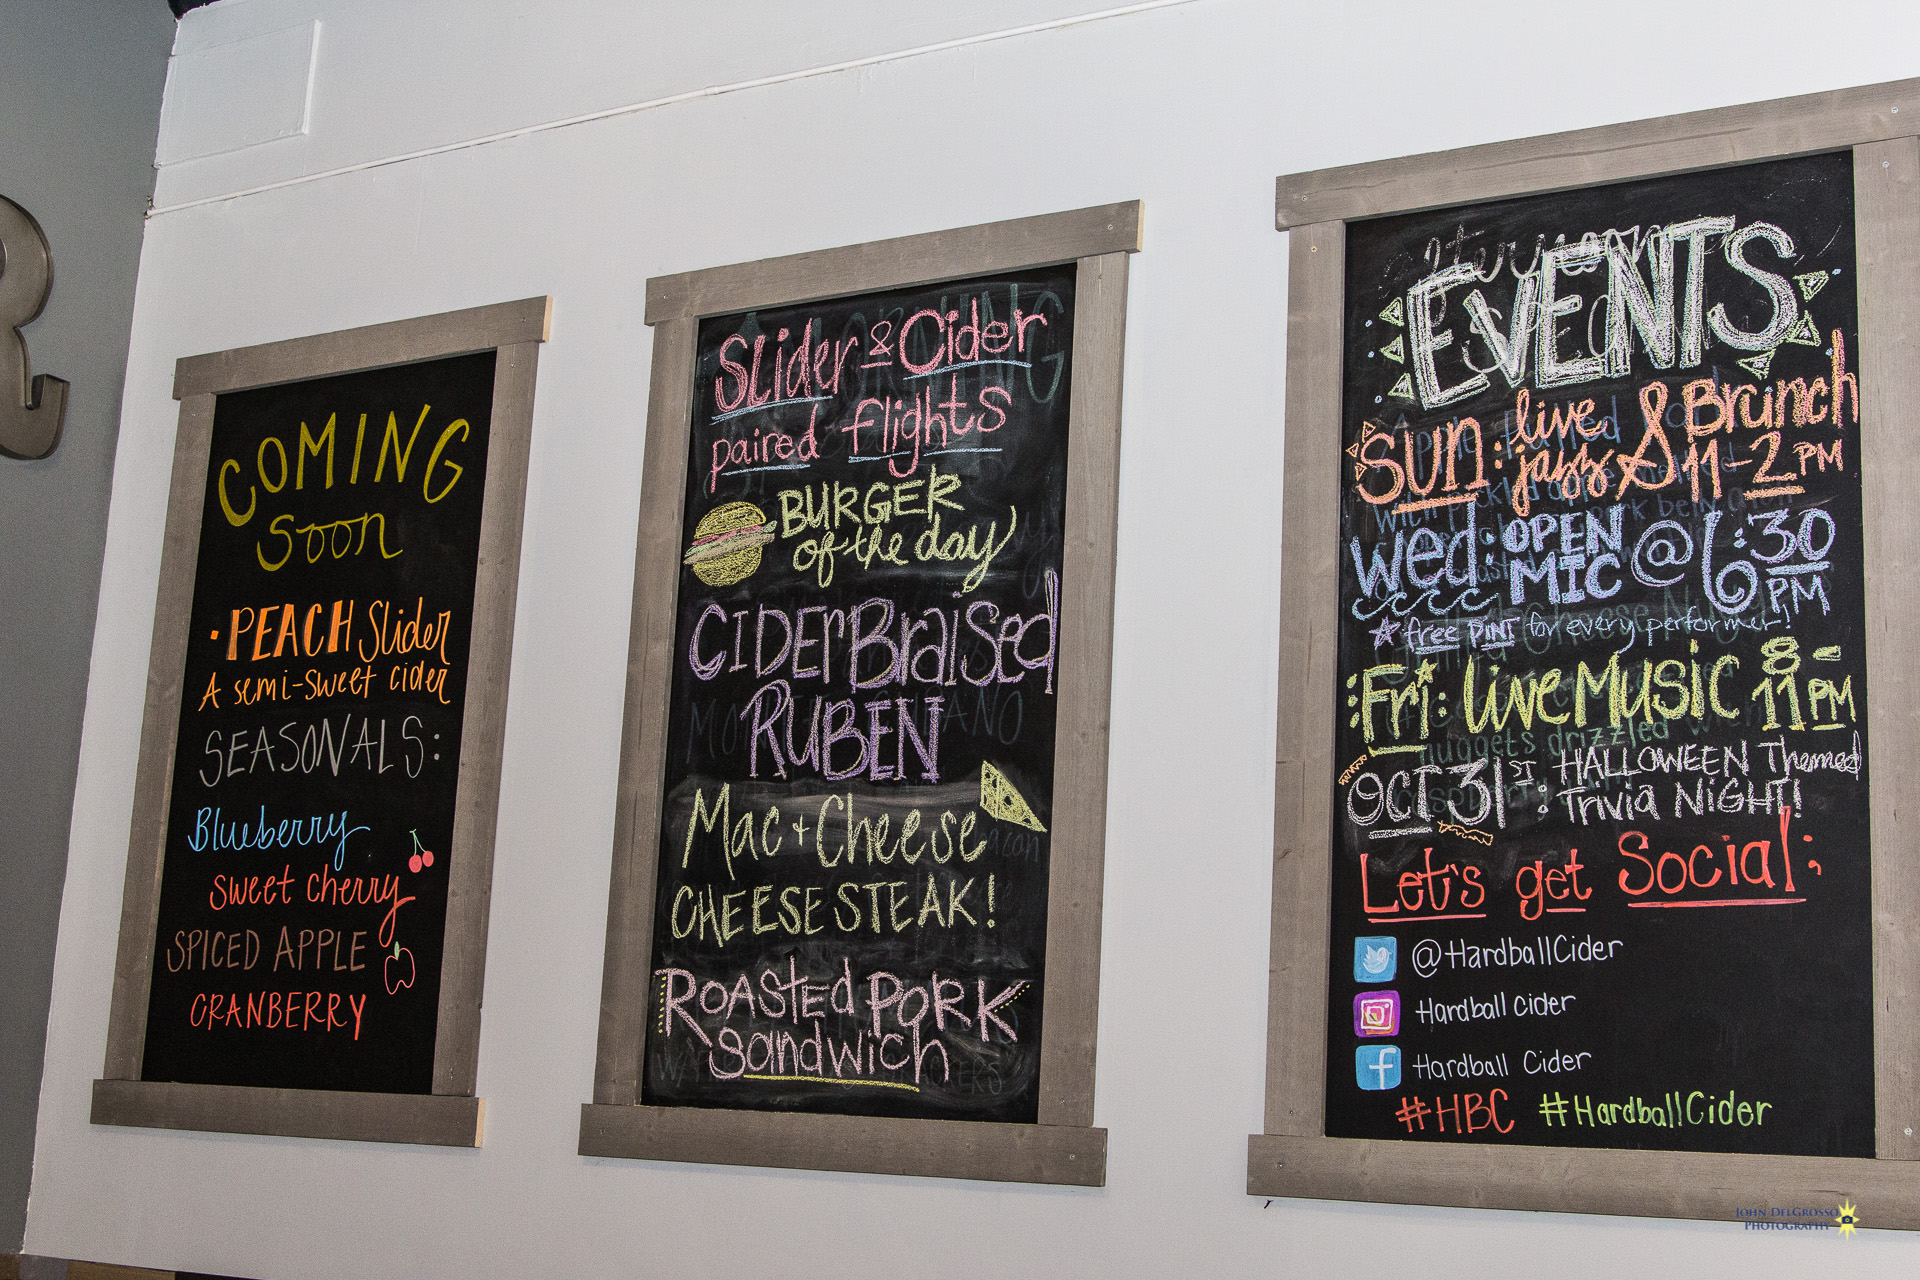 COMING
Soon
• PEACH Slider
A semi-sweet cider
SEASONALS:
Blueberry
Sweet Cherry
SPICED APPLE
CRANBERRY
Slider & Cider
paired flights
BURGER
of the day
CIDER Braised
RUBEN
Mac + Cheese
CHEESESTEAK!
ROASTED PORK
Sandwich
EVENTS
SUN: live jazz & Brunch 11-2 PM
Wed: OPEN MIC @ 6:30 PM
☆ free PINT for every performer!
Fri: live MUSIC 8-11 PM
OCT 31ST: HALLOWEEN Themed
Trivia NIGHT!
Let's get Social:
@HardballCider
Hardball Cider
Hardball Cider
#HBC #HardballCider
JOHN DELGROSSO
PHOTOGRAPHY